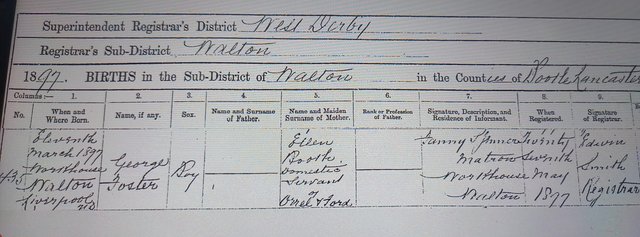 Superintendent Registrar's District West Derby
Registrar's Sub-District Walton
1897. BIRTHS in the Sub-District of Walton in the Counties of Bootle Lancaster
Columns:— 1. 2. 3. 4. 5. 6. 7. 8. 9.
No. When and Where Born. Name, if any. Sex. Name and Surname of Father. Name and Maiden Surname of Mother. Rank or Profession of Father. Signature, Description, and Residence of Informant. When Registered. Signature of Registrar.
435
Eleventh
March 1897
Workhouse
Walton
Liverpool
George
Foster
Boy
Ellen
Booth
Domestic
Servant
of
Orrel Ford
Fanny
Matron
Workhouse
Walton
Twenty
Seventh
May
1897
Edwin
Smith
Registrar